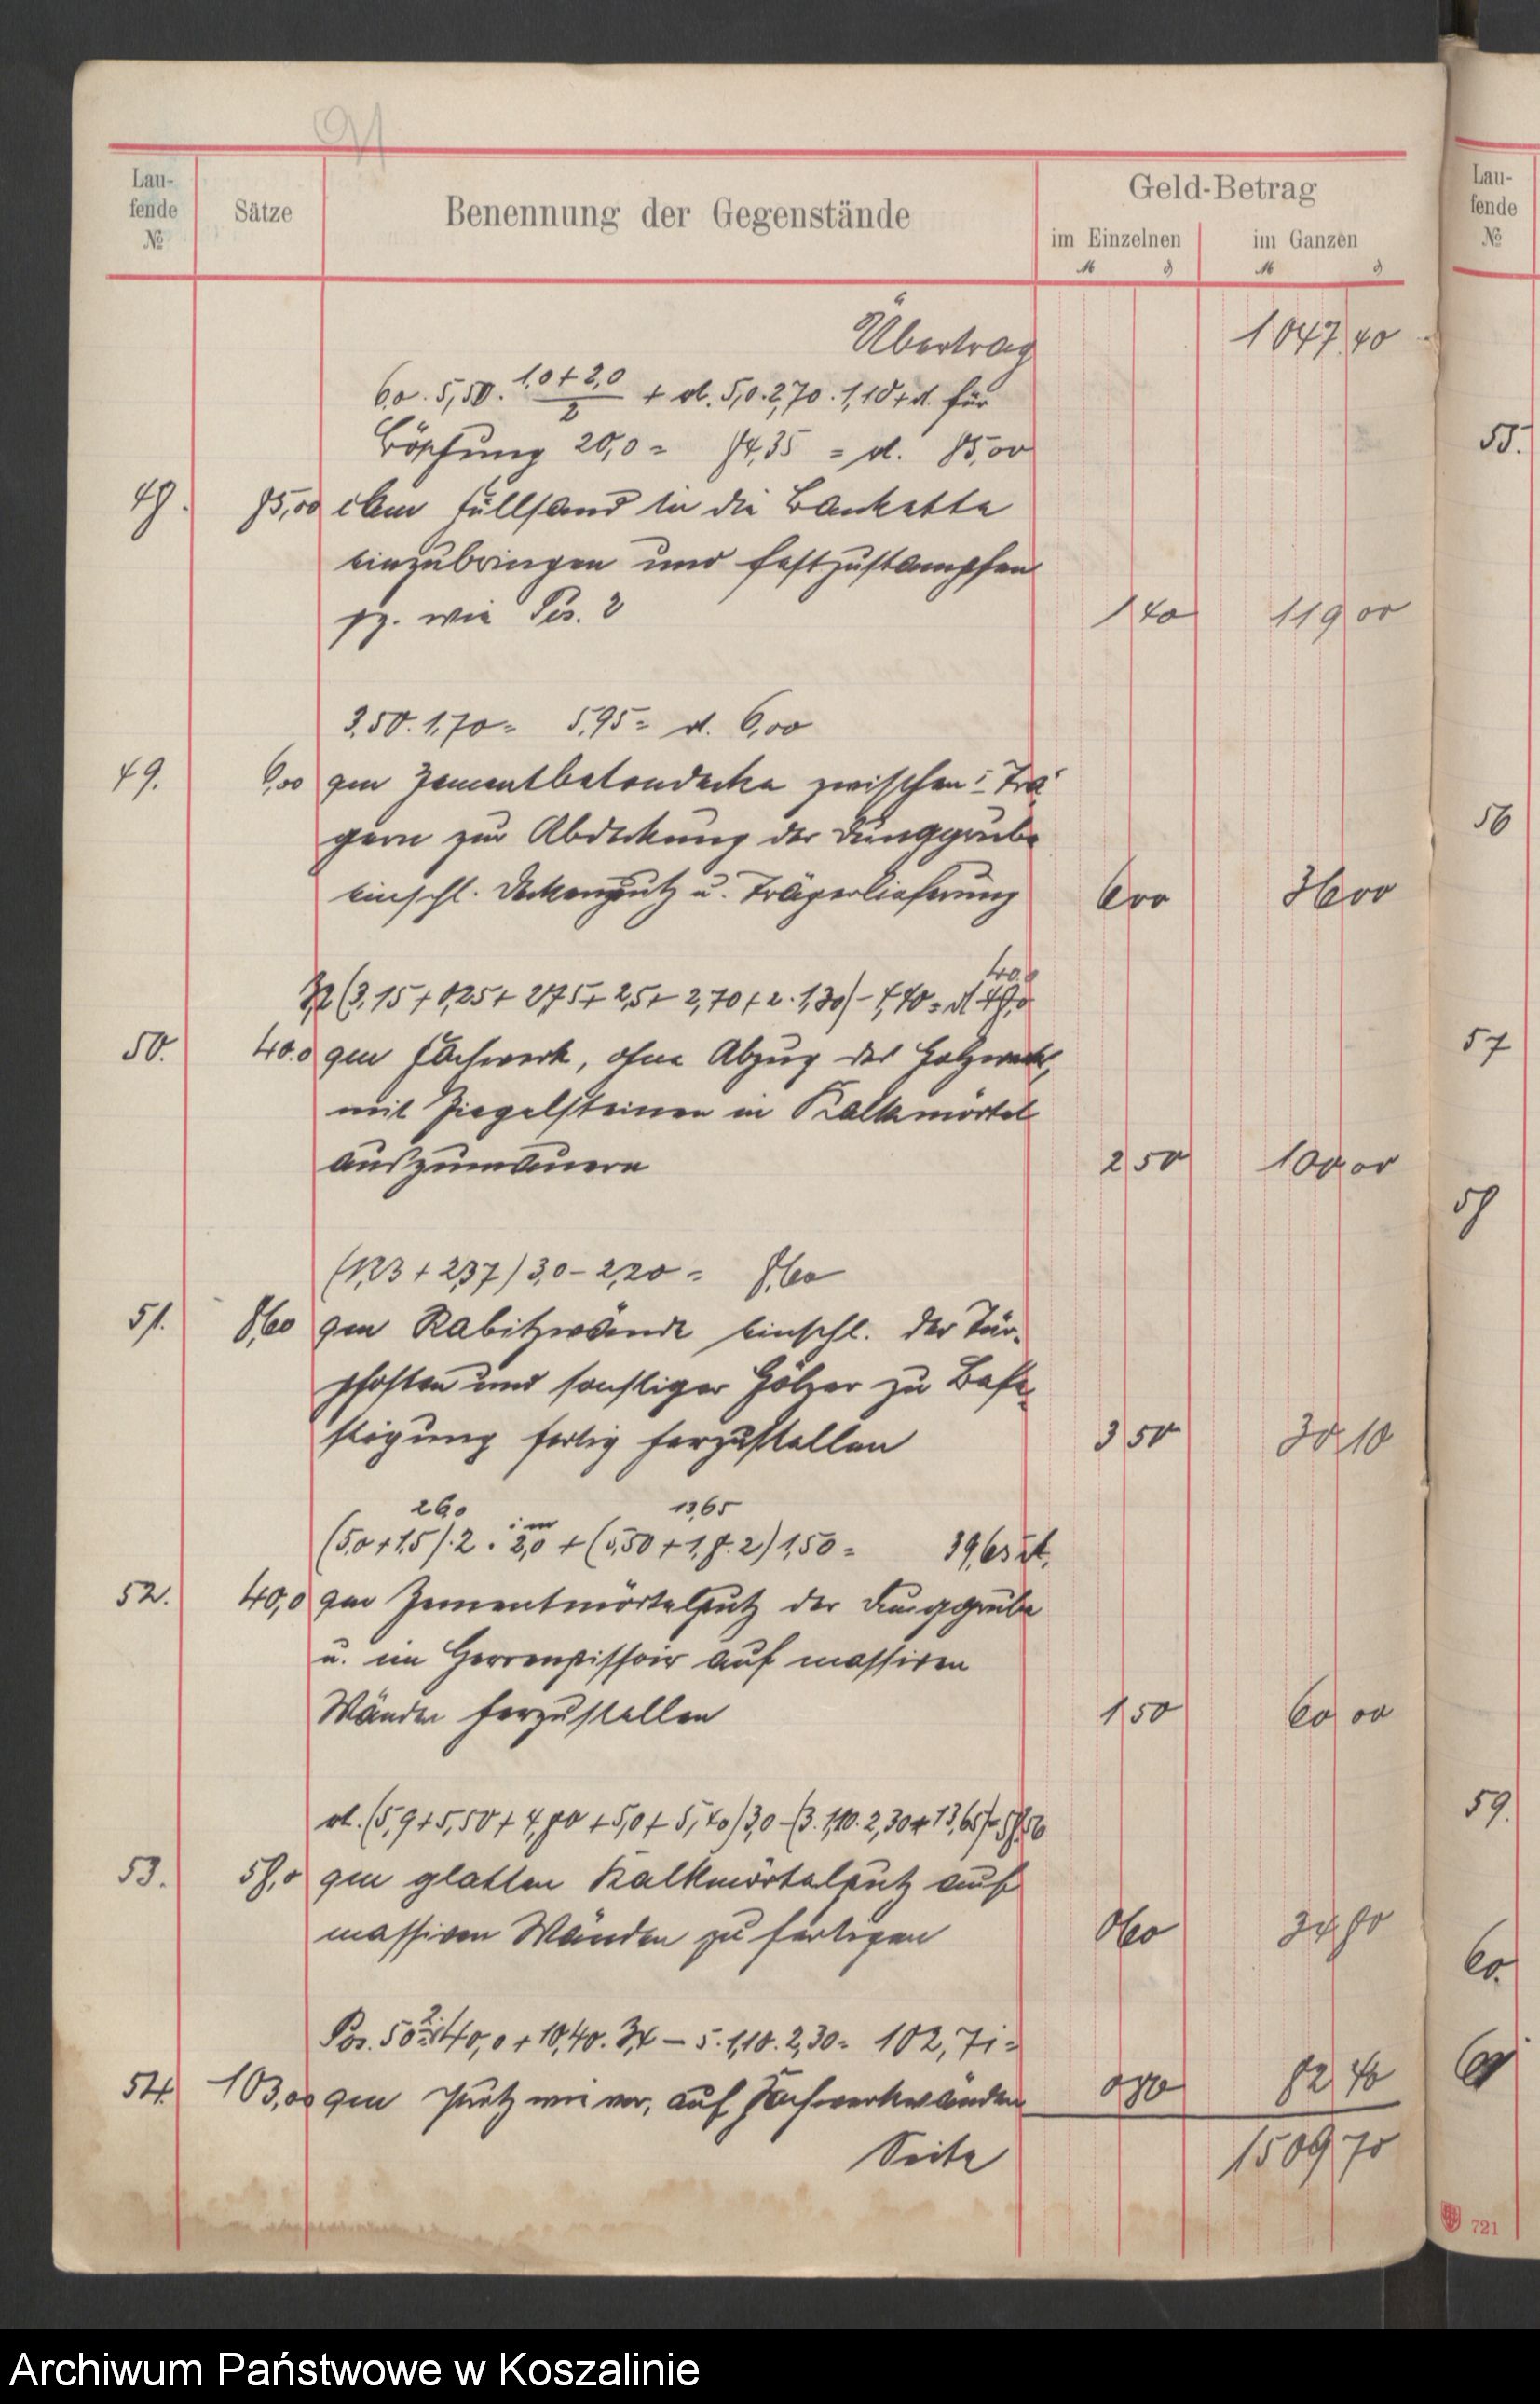 91
Lau-
fende
№
Sätze
Benennung der Gegenstände
Geld-Betrag
im Einzelnen
im Ganzen
M ₰ M ₰
Übertrag 1047 40
6,0 . 5,50 . 1,0 + 2,0 / 2 + rd. 5,0 . 2,70 . 1,10 + rd. für
Böschung 20,0 = 84,35 = rd. 85,00
48. 85,00 cbm Füllsand in die Bankette
einzubringen und festzustampfen
sz. wie Pos. 2 1 40 119 00
3,50 . 1,70 = 5,95 = rd. 6,00
49. 6,00 qm Zementbetondecke zwischen I Trä-
gern zur Abdeckung der Dunggrube
einschl. Deckenputz u. Trägerlieferung 6 00 36 00
40,0
3,2 (3,15 + 0,25 + 2,75 + 2,5 + 2,70 + 2 . 1,30) - 4,40 = rd 40,0
50. 40,0 qm Fachwerk, ohne Abzug des Holzwerks,
mit Ziegelsteinen in Kalkmörtel
auszumauern 2 50 100 00
(1,23 + 2,37) 3,0 - 2,20 = 8,60
51. 8,60 qm Rabitzwände einschl. der Tür-
pfosten und sonstiger Hölzer zu Befe-
stigung fertig herzustellen 3 50 30 10
26,0 13,65
(5,0 + 1,5) . 2 . 2,0 + (5,50 + 1,8 . 2) 1,50 = 39,65 rd.
52. 40,0 qm Zementmörtelputz der Dunggrube
u. im Herrenpissoir auf massiven
Wänden herzustellen 1 50 60 00
rd. (5,9 + 5,50 + 4,80 + 5,0 + 5,40) 3,0 - (3 . 1,10 . 2,30 + 13,65) = 58,56
53. 58,0 qm glatten Kalkmörtelputz auf
massiven Wänden zu fertigen 0 60 34 80
Pos. 50 2 . 40,0 + 10,40 . 3,4 - 5 . 1,10 . 2,30 = 102,71 =
54. 103,00 qm Putz wie vor, auf Fachwerkwänden 0 80 82 40
Seite 1509 70
Lau-
fende
№
55.
56
57
58
59.
60.
61
721
Archiwum Państwowe w Koszalinie